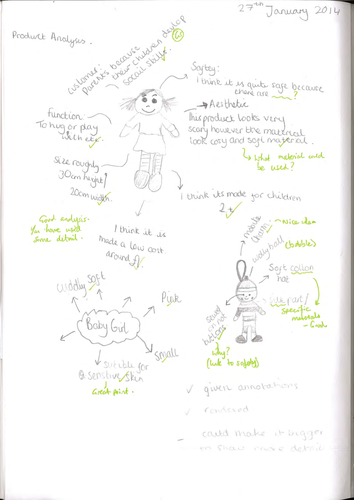 27th January 2014
Product Analysis.
Customer:
parents because
their children develop
social skills.
Safety:
I think it is quite safe because
there are ?
Aesthetic
This product looks very
scary however the material
look cosy and soft material.
what material could
be used?
Function
To hug or play
with etc.
Size roughly
30cm height/
20cm width.
I think its made for children
2+
Good analysis.
You have used
some detail.
I think it is
made a low cost
around
metal
chain
Nice idea
woolly ball
(bobble)
Soft cotton
hat
specific
materials
- Good
Cuddly
Soft
Pink
Baby Girl
Small
suitable for
sensitive skin
Great point.
buttons
Why?
(link to safety)
given annotations
rendered
could make it bigger
to show more detail